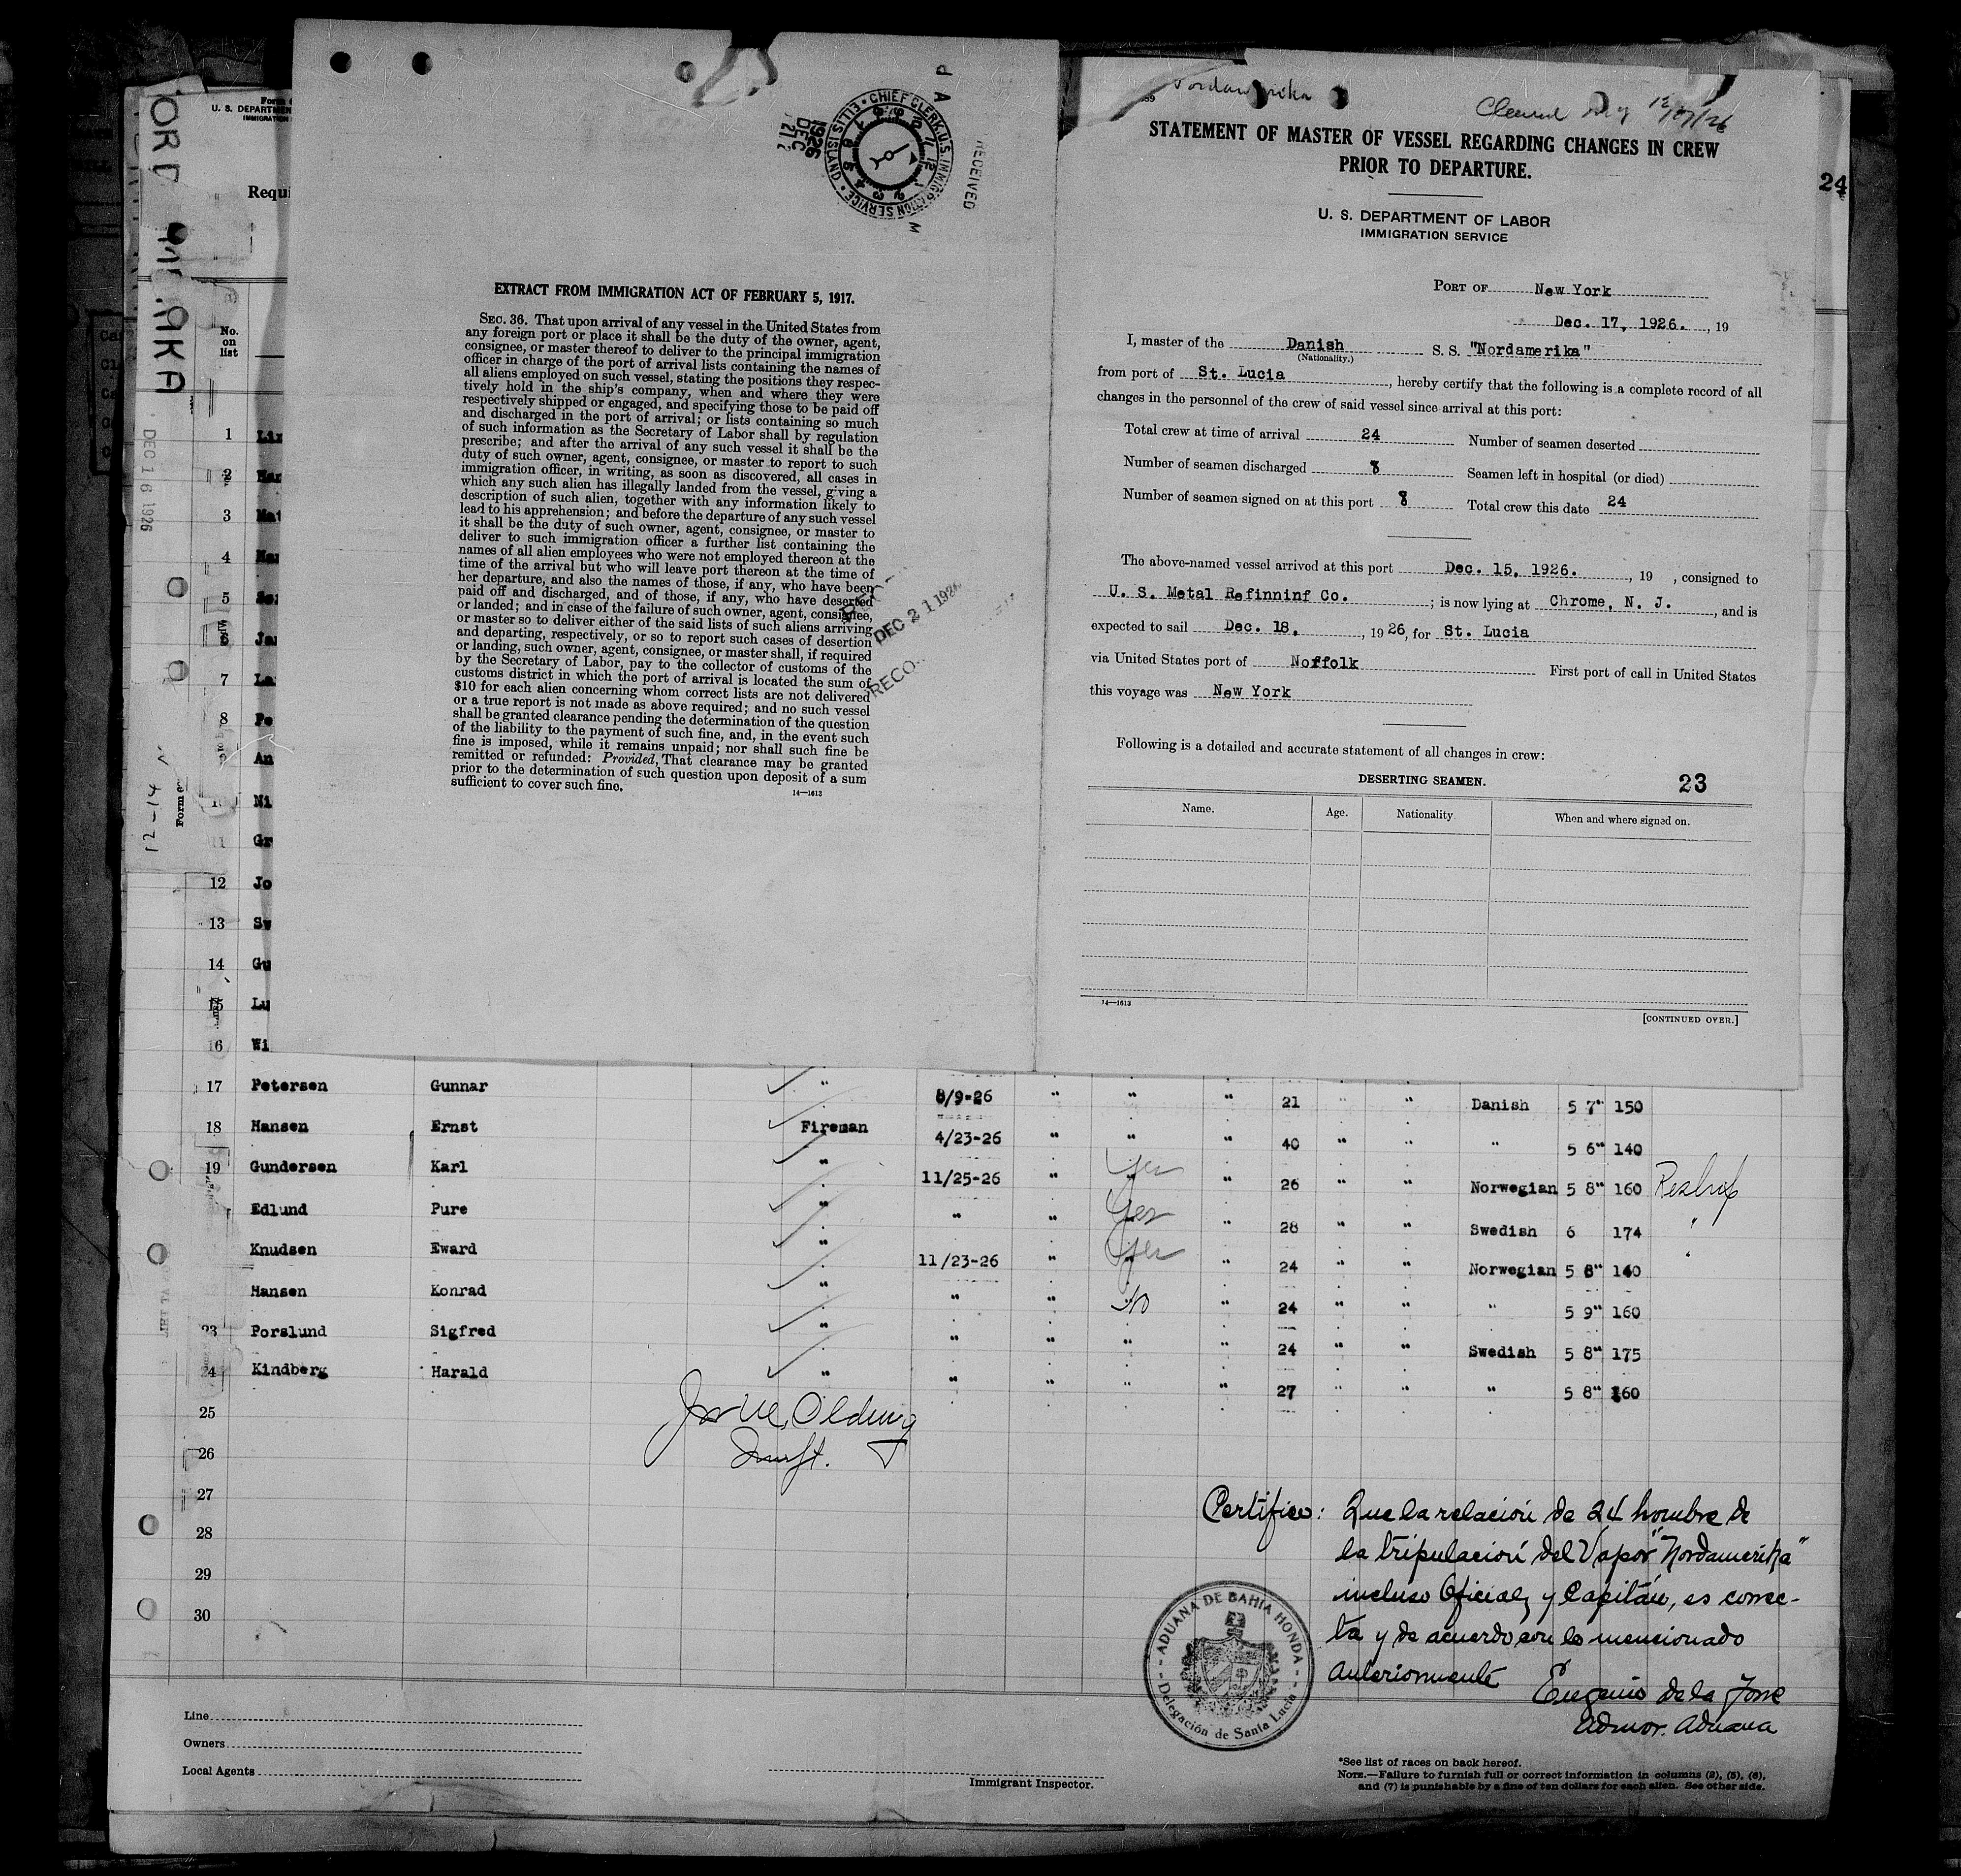 NORDAMERIKA
DEC 16 1926
12-14
U. S. DEPARTMEN
IMMIGRATION
Requi
No.
on
list
CHIEF CLERK, U.S. IMMIGRATION SERVICE • ELLIS ISLAND •
1926
DEC
21
RECEIVED
EXTRACT FROM IMMIGRATION ACT OF FEBRUARY 5, 1917.
SEC. 36. That upon arrival of any vessel in the United States from
any foreign port or place it shall be the duty of the owner, agent,
consignee, or master thereof to deliver to the principal immigration
officer in charge of the port of arrival lists containing the names of
all aliens employed on such vessel, stating the positions they respec-
tively hold in the ship's company, when and where they were
respectively shipped or engaged, and specifying those to be paid off
and discharged in the port of arrival; or lists containing so much
of such information as the Secretary of Labor shall by regulation
prescribe; and after the arrival of any such vessel it shall be the
duty of such owner, agent, consignee, or master to report to such
immigration officer, in writing, as soon as discovered, all cases in
which any such alien has illegally landed from the vessel, giving a
description of such alien, together with any information likely to
lead to his apprehension; and before the departure of any such vessel
it shall be the duty of such owner, agent, consignee, or master to
deliver to such immigration officer a further list containing the
names of all alien employees who were not employed thereon at the
time of the arrival but who will leave port thereon at the time of
her departure, and also the names of those, if any, who have been
paid off and discharged, and of those, if any, who have deserted
or landed; and in case of the failure of such owner, agent, consignee,
or master so to deliver either of the said lists of such aliens arriving
and departing, respectively, or so to report such cases of desertion
or landing, such owner, agent, consignee, or master shall, if required
by the Secretary of Labor, pay to the collector of customs of the
customs district in which the port of arrival is located the sum of
$10 for each alien concerning whom correct lists are not delivered
or a true report is not made as above required; and no such vessel
shall be granted clearance pending the determination of the question
of the liability to the payment of such fine, and, in the event such
fine is imposed, while it remains unpaid; nor shall such fine be
remitted or refunded: Provided, That clearance may be granted
prior to the determination of such question upon deposit of a sum
sufficient to cover such fine.
14—1613
DEC 21 1926
RECO
Cleared 12/17/26
STATEMENT OF MASTER OF VESSEL REGARDING CHANGES IN CREW
PRIOR TO DEPARTURE.
24
U. S. DEPARTMENT OF LABOR
IMMIGRATION SERVICE
PORT OF New York
Dec. 17, 1926. , 19
I, master of the Danish S. S. "Nordamerika"
(Nationality.)
from port of St. Lucia , hereby certify that the following is a complete record of all
changes in the personnel of the crew of said vessel since arrival at this port:
Total crew at time of arrival 24 Number of seamen deserted
Number of seamen discharged 8 Seamen left in hospital (or died)
Number of seamen signed on at this port 8 Total crew this date 24
The above-named vessel arrived at this port Dec. 15, 1926. , 19 , consigned to
U. S. Metal Refinninf Co. ; is now lying at Chrome, N. J. , and is
expected to sail Dec. 18, , 1926, for St. Lucia
via United States port of Noffolk First port of call in United States
this voyage was New York
Following is a detailed and accurate statement of all changes in crew:
DESERTING SEAMEN. 23
Name. Age. Nationality When and where signed on.
14—1613
[CONTINUED OVER.]
1 Lin
2 Han
3 Mat
4 Han
5
6 Ja
7 La
8 Pe
9 An
10 Ni
11 Gr
12 Jo
13 Sv
14 Gu
15 Lu
16 Wi
17 Petersen Gunnar " 8/9-26 " " " 21 " " Danish 5 7" 150
18 Hansen Ernst Fireman 4/23-26 " " " 40 " " " 5 6" 140
19 Gundersen Karl " 11/25-26 " Yes " 26 " " Norwegian 5 8" 160
Edlund Pure " " " Yes " 28 " " Swedish 6 174 "
Knudsen Eward " 11/23-26 " Yes " 24 " " Norwegian 5 8" 140 "
Hansen Konrad " " " No " 24 " " " 5 9" 160
23 Forslund Sigfred " " " " " 24 " " Swedish 5 8" 175
24 Kindberg Harald " " " " " 27 " " " 5 8" 160
25
26
27
28
29
30
Certifico: Que la relación de 24 hombre de
la tripulación del Vapor "Nordamerika"
incluso Oficiales y Capitán, es correc-
ta y de acuerdo con lo mencionado
anteriormente
Eugenio de la Torre
Admor. Aduana
ADUANA DE BAHIA HONDA
Delegación de Santa Lucia
Line
Owners
Local Agents
Immigrant Inspector.
*See list of races on back hereof.
NOTE.—Failure to furnish full or correct information in columns (2), (5), (6),
and (7) is punishable by a fine of ten dollars for each alien. See other side.